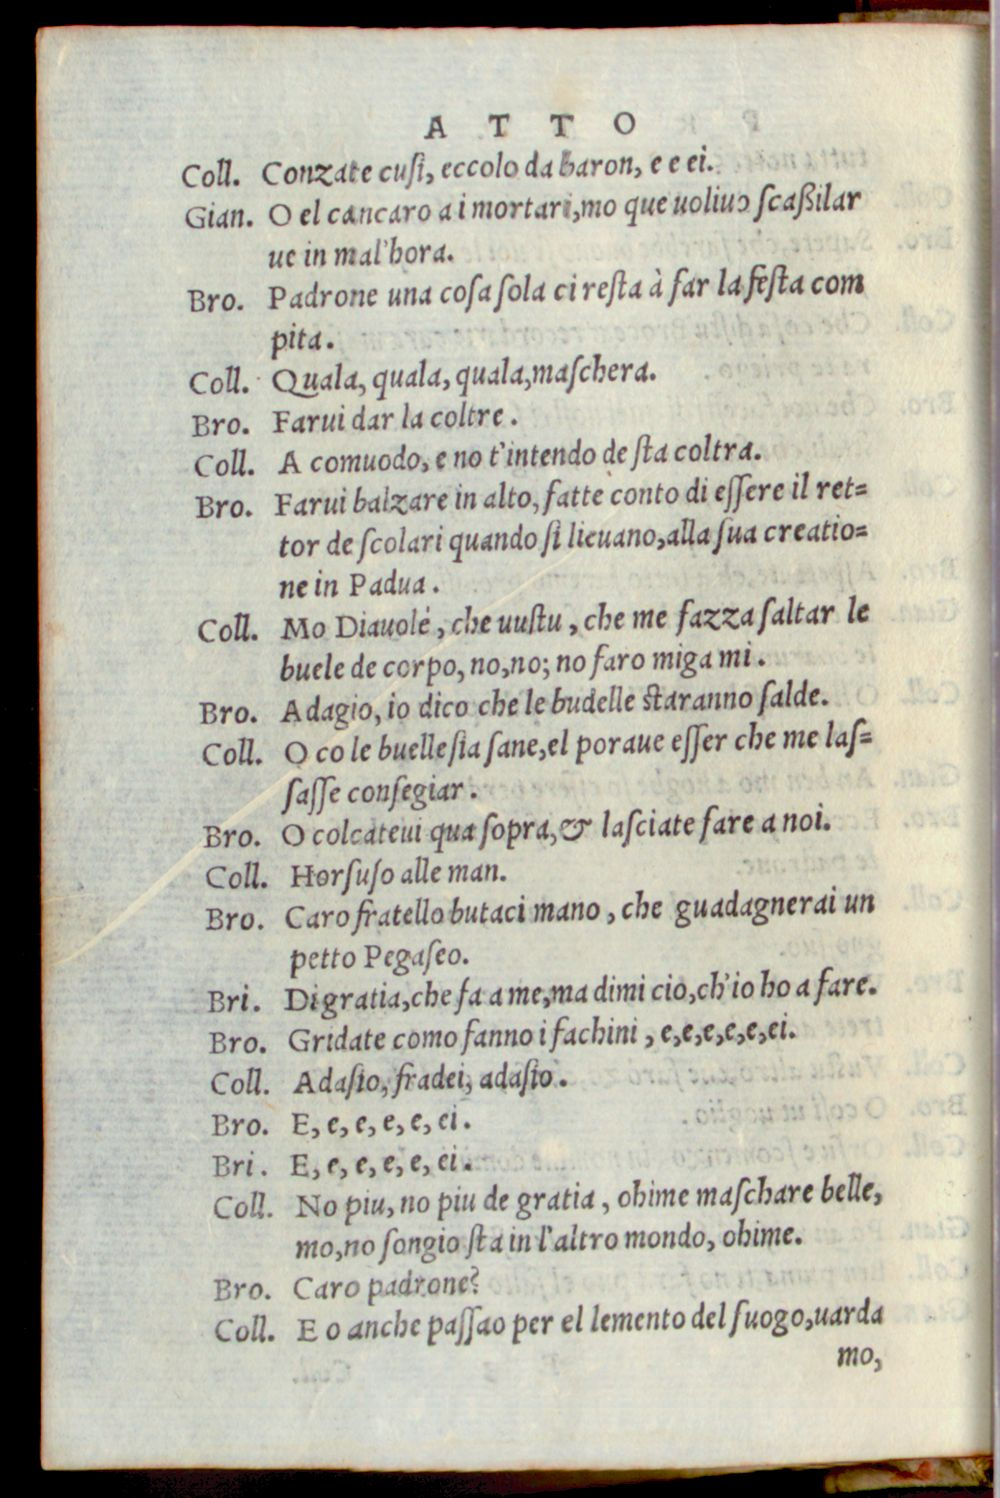 ATTO
Coll. Conzate cusi, eccolo da baron, e e ei.
Gian. O el cancaro a i mortari, mo que uoliuo scaßilar
ue in mal'hora.
Bro. Padrone una cosa sola ci resta à far la festa com
pita.
Coll. Quala, quala, quala, maschera.
Bro. Farui dar la coltre.
Coll. A comuodo, e no t'intendo de sta coltra.
Bro. Farui balzare in alto, fatte conto di essere il ret=
tor de scolari quando si lieuano, alla sua creatio=
ne in Padua.
Coll. Mo Diauole, che uustu, che me fazza saltar le
buele de corpo, no, no; no faro miga mi.
Bro. Adagio, io dico che le budelle staranno salde.
Coll. O co le buelle sia sane, el poraue esser che me las=
sasse consegiar.
Bro. O colcateui qua sopra, & lasciate fare a noi.
Coll. Horsuso alle man.
Bro. Caro fratello butaci mano, che guadagnerai un
petto Pegaseo.
Bri. Di gratia, che fa a me, ma dimi cio, ch'io ho a fare.
Bro. Gridate como fanno i fachini, e, e, e, e, e, ei.
Coll. Adasio, fradei, adasio.
Bro. E, e, e, e, e, ei.
Bri. E, e, e, e, e, ei.
Coll. No piu, no piu de gratia, ohime maschare belle,
mo, no songio sta in l'altro mondo, ohime.
Bro. Caro padrone?
Coll. E o anche passao per el lemento del fuogo, uarda
mo,